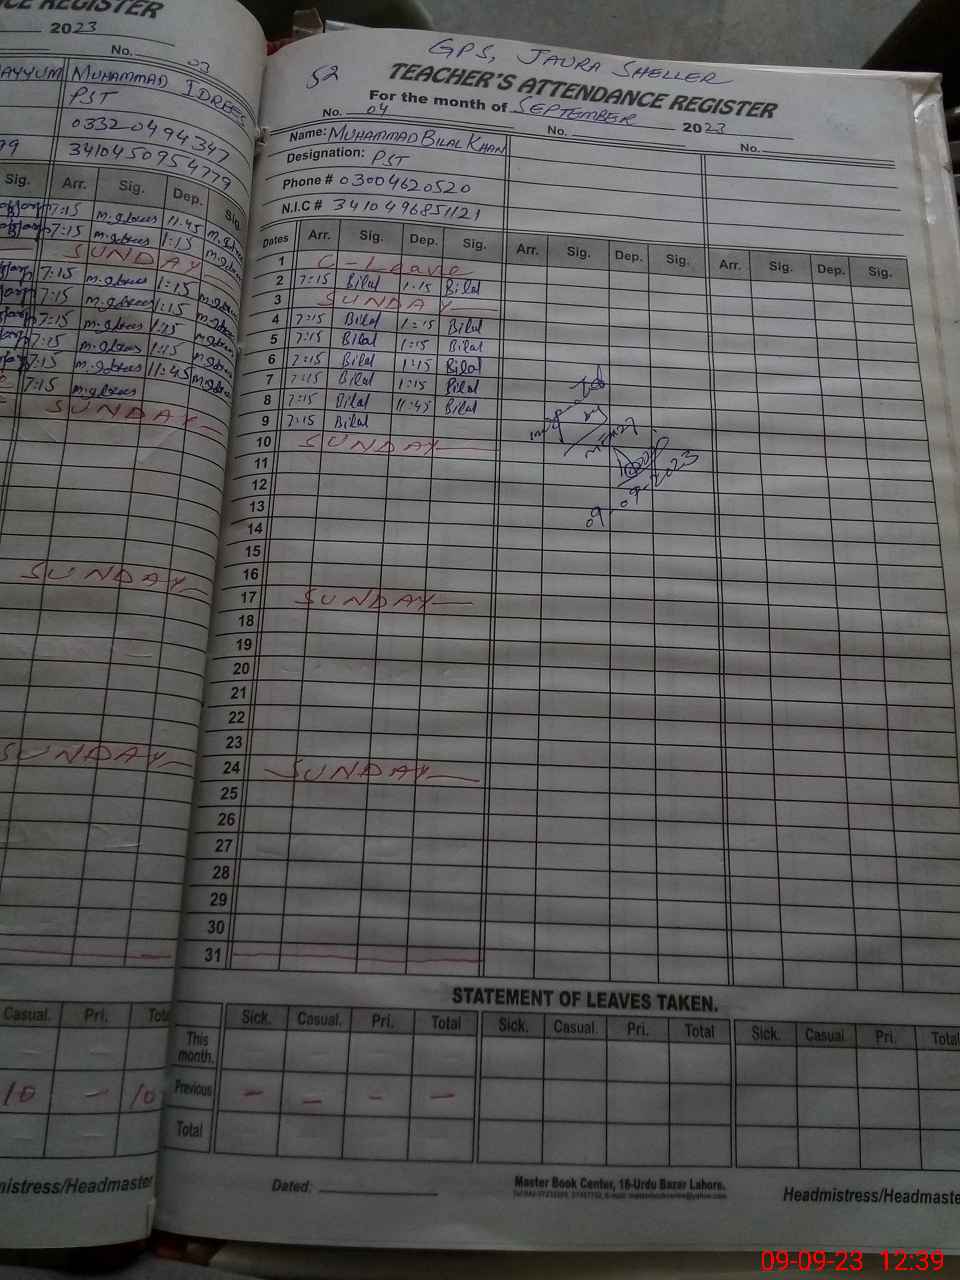 CE REGISTER
2023
No. 03
AYYUM MUHAMMAD IDREES
PST
0332 0494347
99 3410450954779
Sig. Arr. Sig. Dep. Sig
7:15 m.idrees 11:45 m.idrees
7:15 m.idrees 1:15 m.idrees
SUNDAY
7:15 m.idrees 1:15 m.idrees
7:15 m.idrees 1:15 m.idrees
7:15 m.idrees 1:15 m.idrees
7:15 m.idrees 1:15 m.idrees
7:15 m.idrees 11:45 m.idrees
7:15 m.idrees
SUNDAY
SUNDAY
SUNDAY
Casual. Pri. Total
10 - 10
mistress/Headmaster
GPS, JAURA SHELLER
52
TEACHER'S ATTENDANCE REGISTER
For the month of SEPTEMBER 2023
No. 04 No. No.
Name: MUHAMMAD BILAL KHAN
Designation: PST
Phone # 03004620520
N.I.C # 3410496851121
Dates Arr. Sig. Dep. Sig. Arr. Sig. Dep. Sig. Arr. Sig. Dep. Sig.
1 C-Leave
2 7:15 Bilal 1:15 Bilal
3 SUNDAY
4 7:15 Bilal 1:15 Bilal
5 7:15 Bilal 1:15 Bilal
6 7:15 Bilal 1:15 Bilal
7 7:15 Bilal 1:15 Bilal
8 7:15 Bilal 11:45 Bilal
9 7:15 Bilal
10 SUNDAY
11
12
13
09-09-2023
14
15
16
17 SUNDAY
18
19
20
21
22
23
24 SUNDAY
25
26
27
28
29
30
31
STATEMENT OF LEAVES TAKEN.
Sick. Casual. Pri. Total Sick. Casual. Pri. Total Sick. Casual Pri. Total
This month.
Previous - - - -
Total
Dated:
Master Book Center, 16-Urdu Bazar Lahore.
Headmistress/Headmaste
09-09-23 12:39